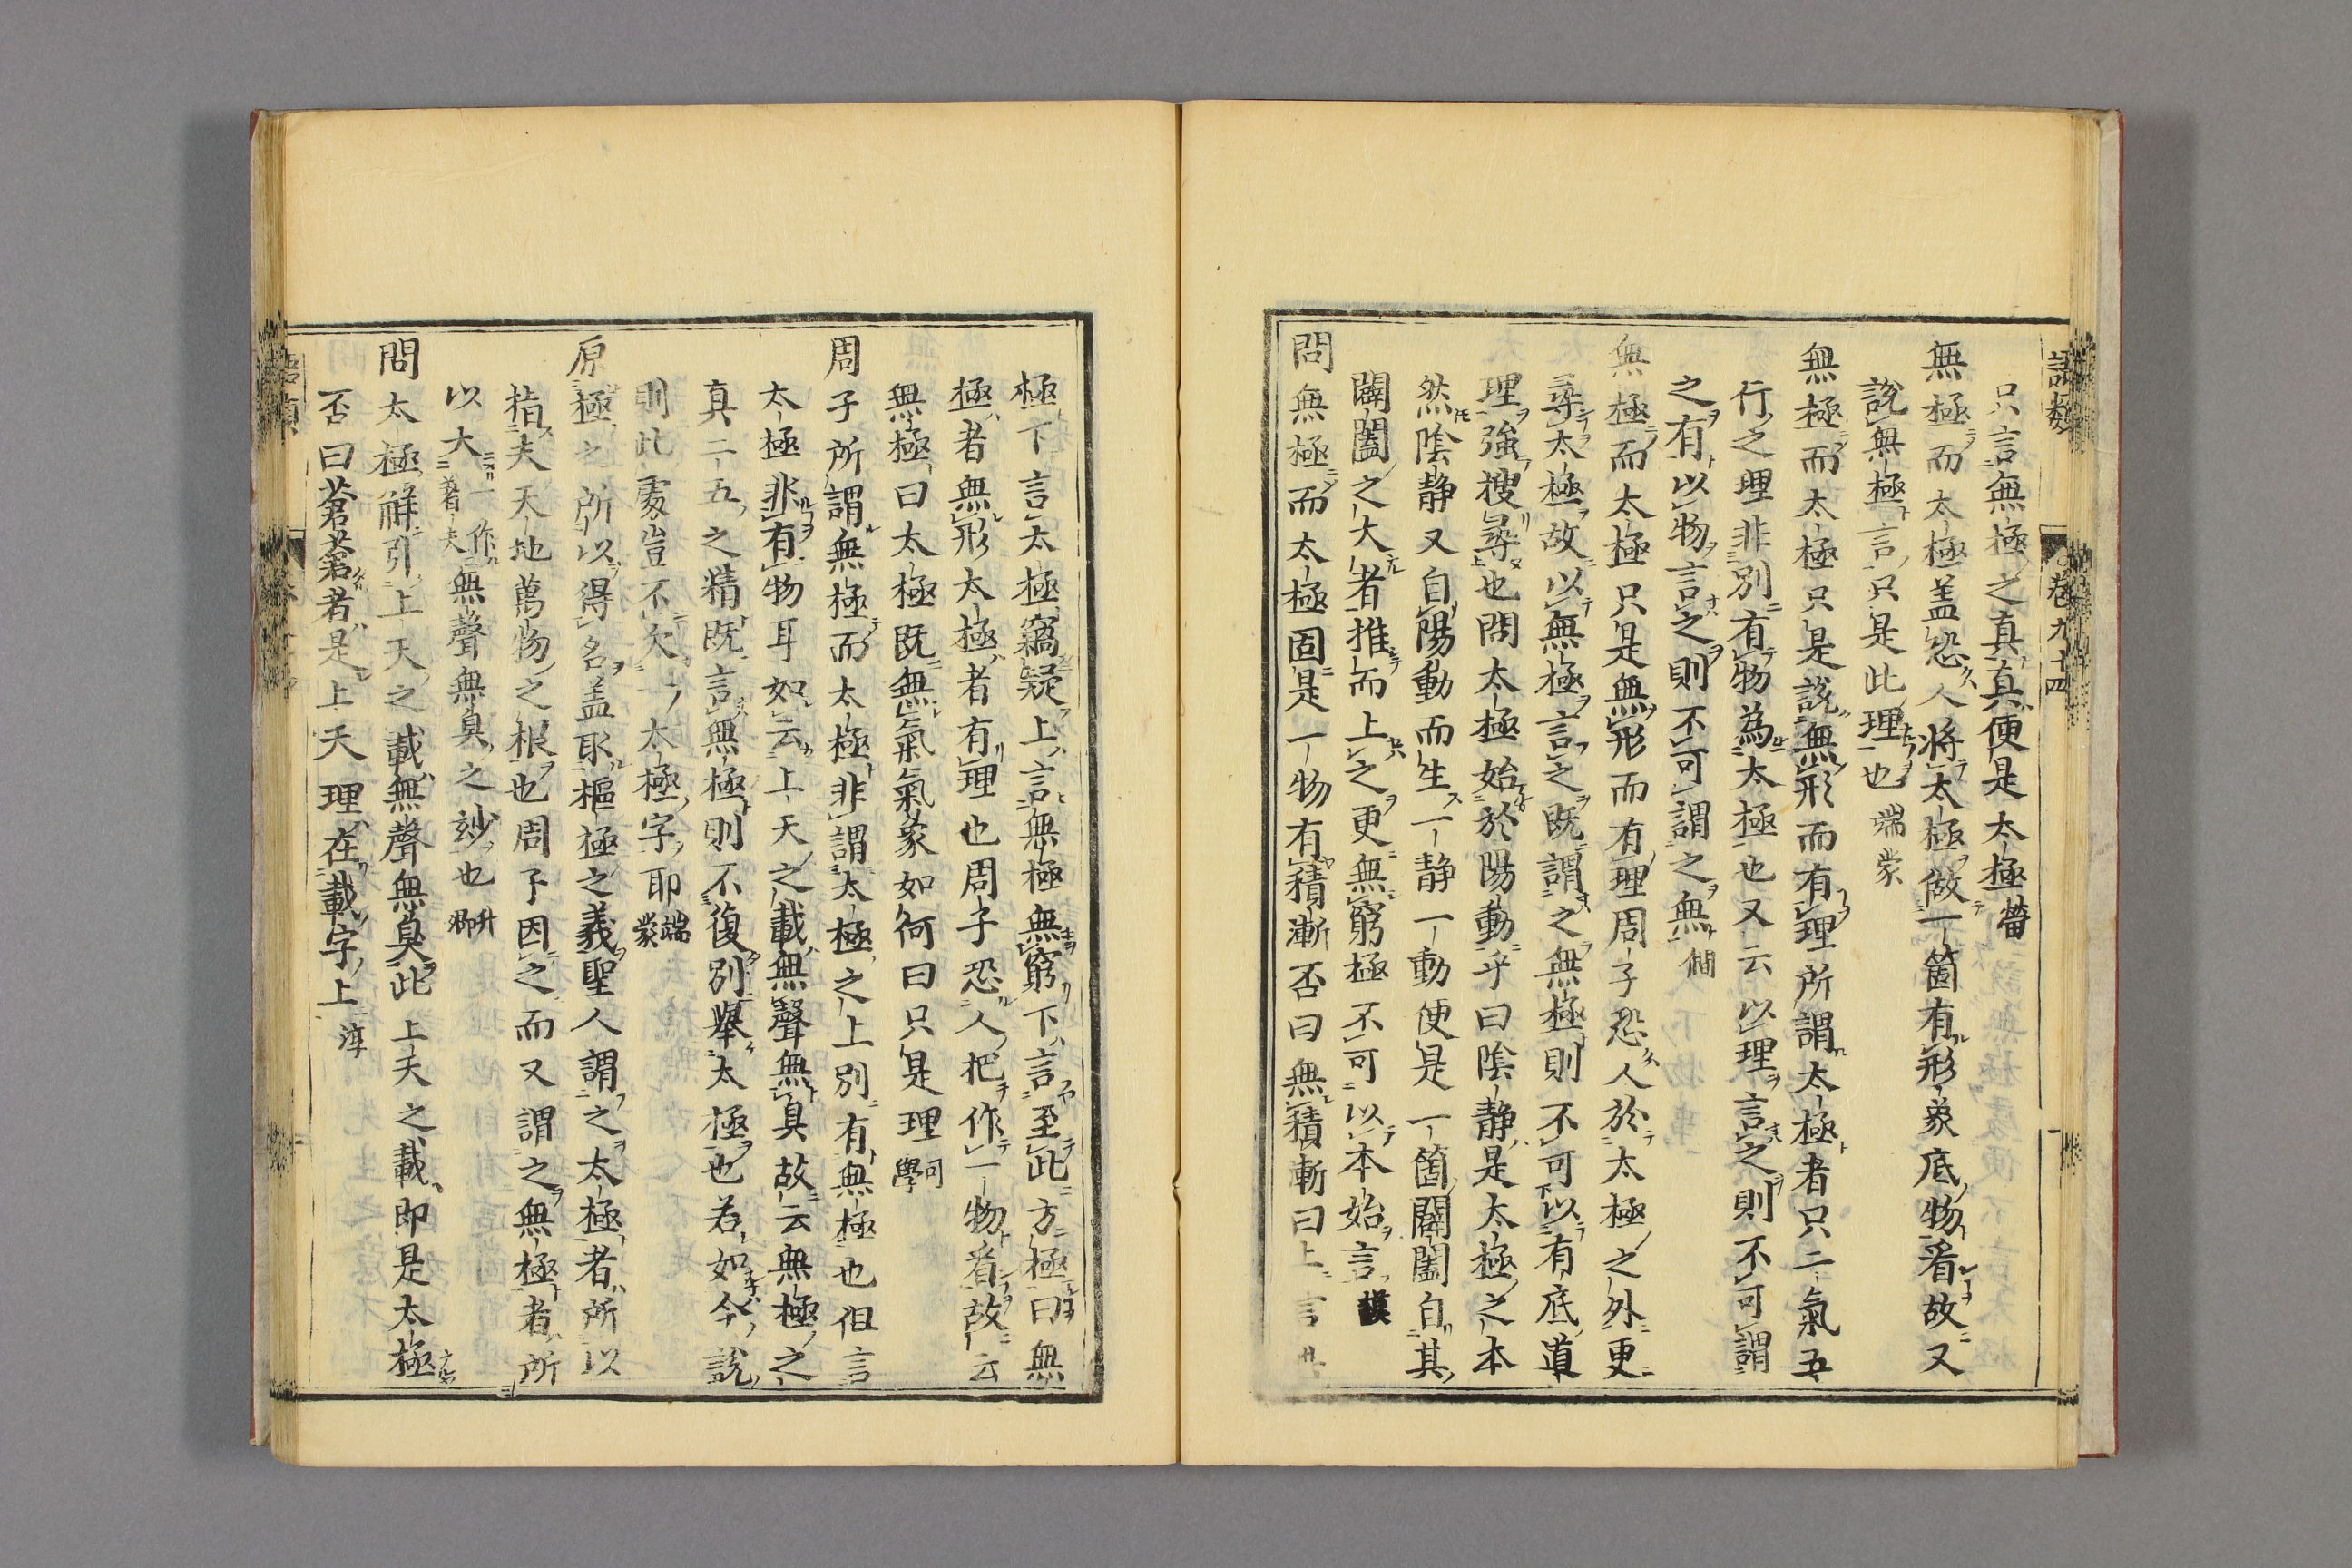 語類 卷九十四
只言無極之真真便是太極 㽦
無極而太極蓋恐人將太極做一箇有形象底物看故又
說無極言只是此理也 端蒙
無極而太極只是說無形而有理所謂太極者只二氣五
行之理非別有物為太極也又云以理言之則不可謂
之有以物言之則不可謂之無 僩
無極而太極只是無形而有理周子恐人於太極之外更
尋太極故以無極言之既謂之無極則不可以有底道
理強搜尋也問太極始於陽動乎曰陰静是太極之本
然陰静又自陽動而生一静一動便是一箇闢闔自其
闢闔之大者推而上之更無窮極不可以本始言 謨
問無極而太極固是一物有積漸否曰無積漸曰上言無
極下言太極竊疑上言無極無窮下言至此方極曰無
極者無形太極者有理也周子恐人把作一物看故云
無極曰太極既無氣氣象如何曰只是理 可學
周子所謂無極而太極非謂太極之上別有無極也但言
太極非有物耳如云上天之載無聲無臭故云無極之
真二五之精既言無極則不復別舉太極也若如今說
則此處豈不欠一太極字耶 端蒙
原極之所以得名蓋取樞極之義聖人謂之太極者所以
指夫天地萬物之根也周子因之而又謂之無極者所
以大 一作著夫 無聲無臭之妙也 升卿
問太極解引上天之載無聲無臭此上天之載即是太極
否曰蒼蒼者是上天理在載字上 淳
語類